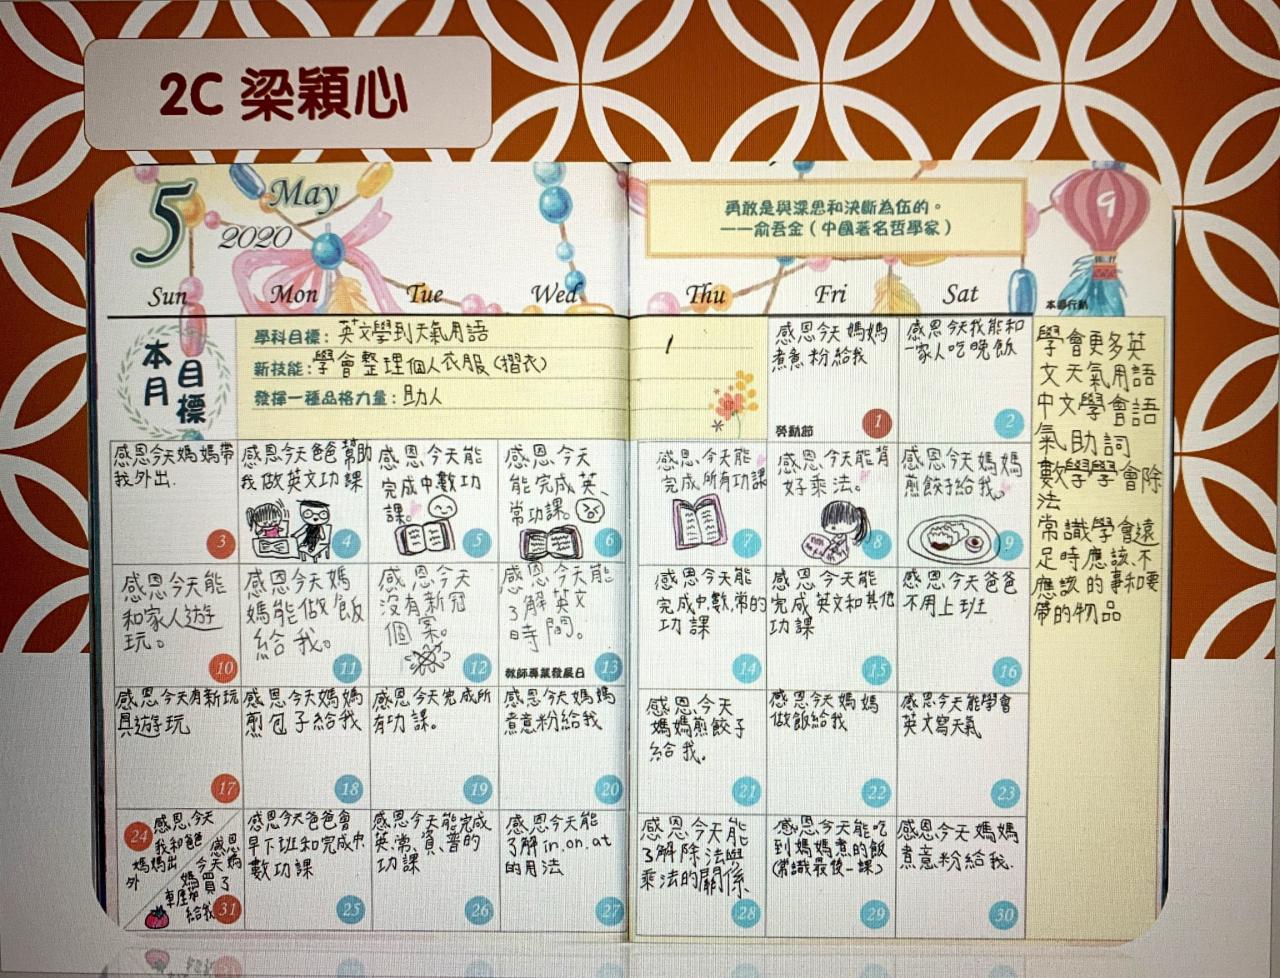 2C 梁穎心
5 May
2020
勇敢是與深思和決斷為伍的。
——俞吾金（中國著名哲學家）
9
Sun Mon Tue Wed Thu Fri Sat 本週行動
本月目標
學科目標：英文學到天氣用語
新技能：學會整理個人衣服（摺衣）
發揮一種品格力量：助人
1
感恩今天媽媽
煮意粉給我
勞動節
1
感恩今天我能和
一家人吃晚飯
2
學會更多英
文天氣用語
中文學會語
氣助詞
數學學會除
法
常識學會遠
足時應該、不
應該的事和要
帶的物品
感恩今天媽媽帶
我外出.
3
感恩今天爸爸幫助
我做英文功課
4
感恩今天能
完成中數功
課。
5
感恩今天
能完成英、
常功課。
6
感恩今天能
完成所有功課
7
感恩今天能背
好乘法。
8
感恩今天媽媽
煎餃子給我。
9
感恩今天能
和家人遊
玩。
10
感恩今天媽
媽能做飯
給我。
11
感恩今天
沒有新冠
個案。
12
感恩今天能
了解英文
時間。
教師專業發展日
13
感恩今天能
完成中.數.常的
功課
14
感恩今天能
完成英文和其他
功課
15
感恩今天爸爸
不用上班
16
感恩今天有新玩
具遊玩
17
感恩今天媽媽
煎包子給我
18
感恩今天完成所
有功課。
19
感恩今天媽媽
煮意粉給我
20
感恩今天
媽媽煎餃子
給我。
21
感恩今天媽媽
做飯給我
22
感恩今天能學會
英文寫天氣
23
24
感恩今天
我和爸爸
媽媽出
外
感恩
今天媽
媽買了
給我
31
感恩今天爸爸會
早下班和完成中.
數功課
25
感恩今天能完成
英、常、資、普的
功課
26
感恩今天能
了解in.on.at
的用法
27
感恩今天能
了解除法與
乘法的關係
28
感恩今天能吃
到媽媽煮的飯
(常識最後一課)
29
感恩今天媽媽
煮意粉給我.
30